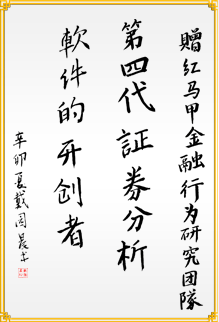 赠红马甲金融行为研究团隊
第四代証券分析
軟件的开创者
辛卯夏戴国晨书